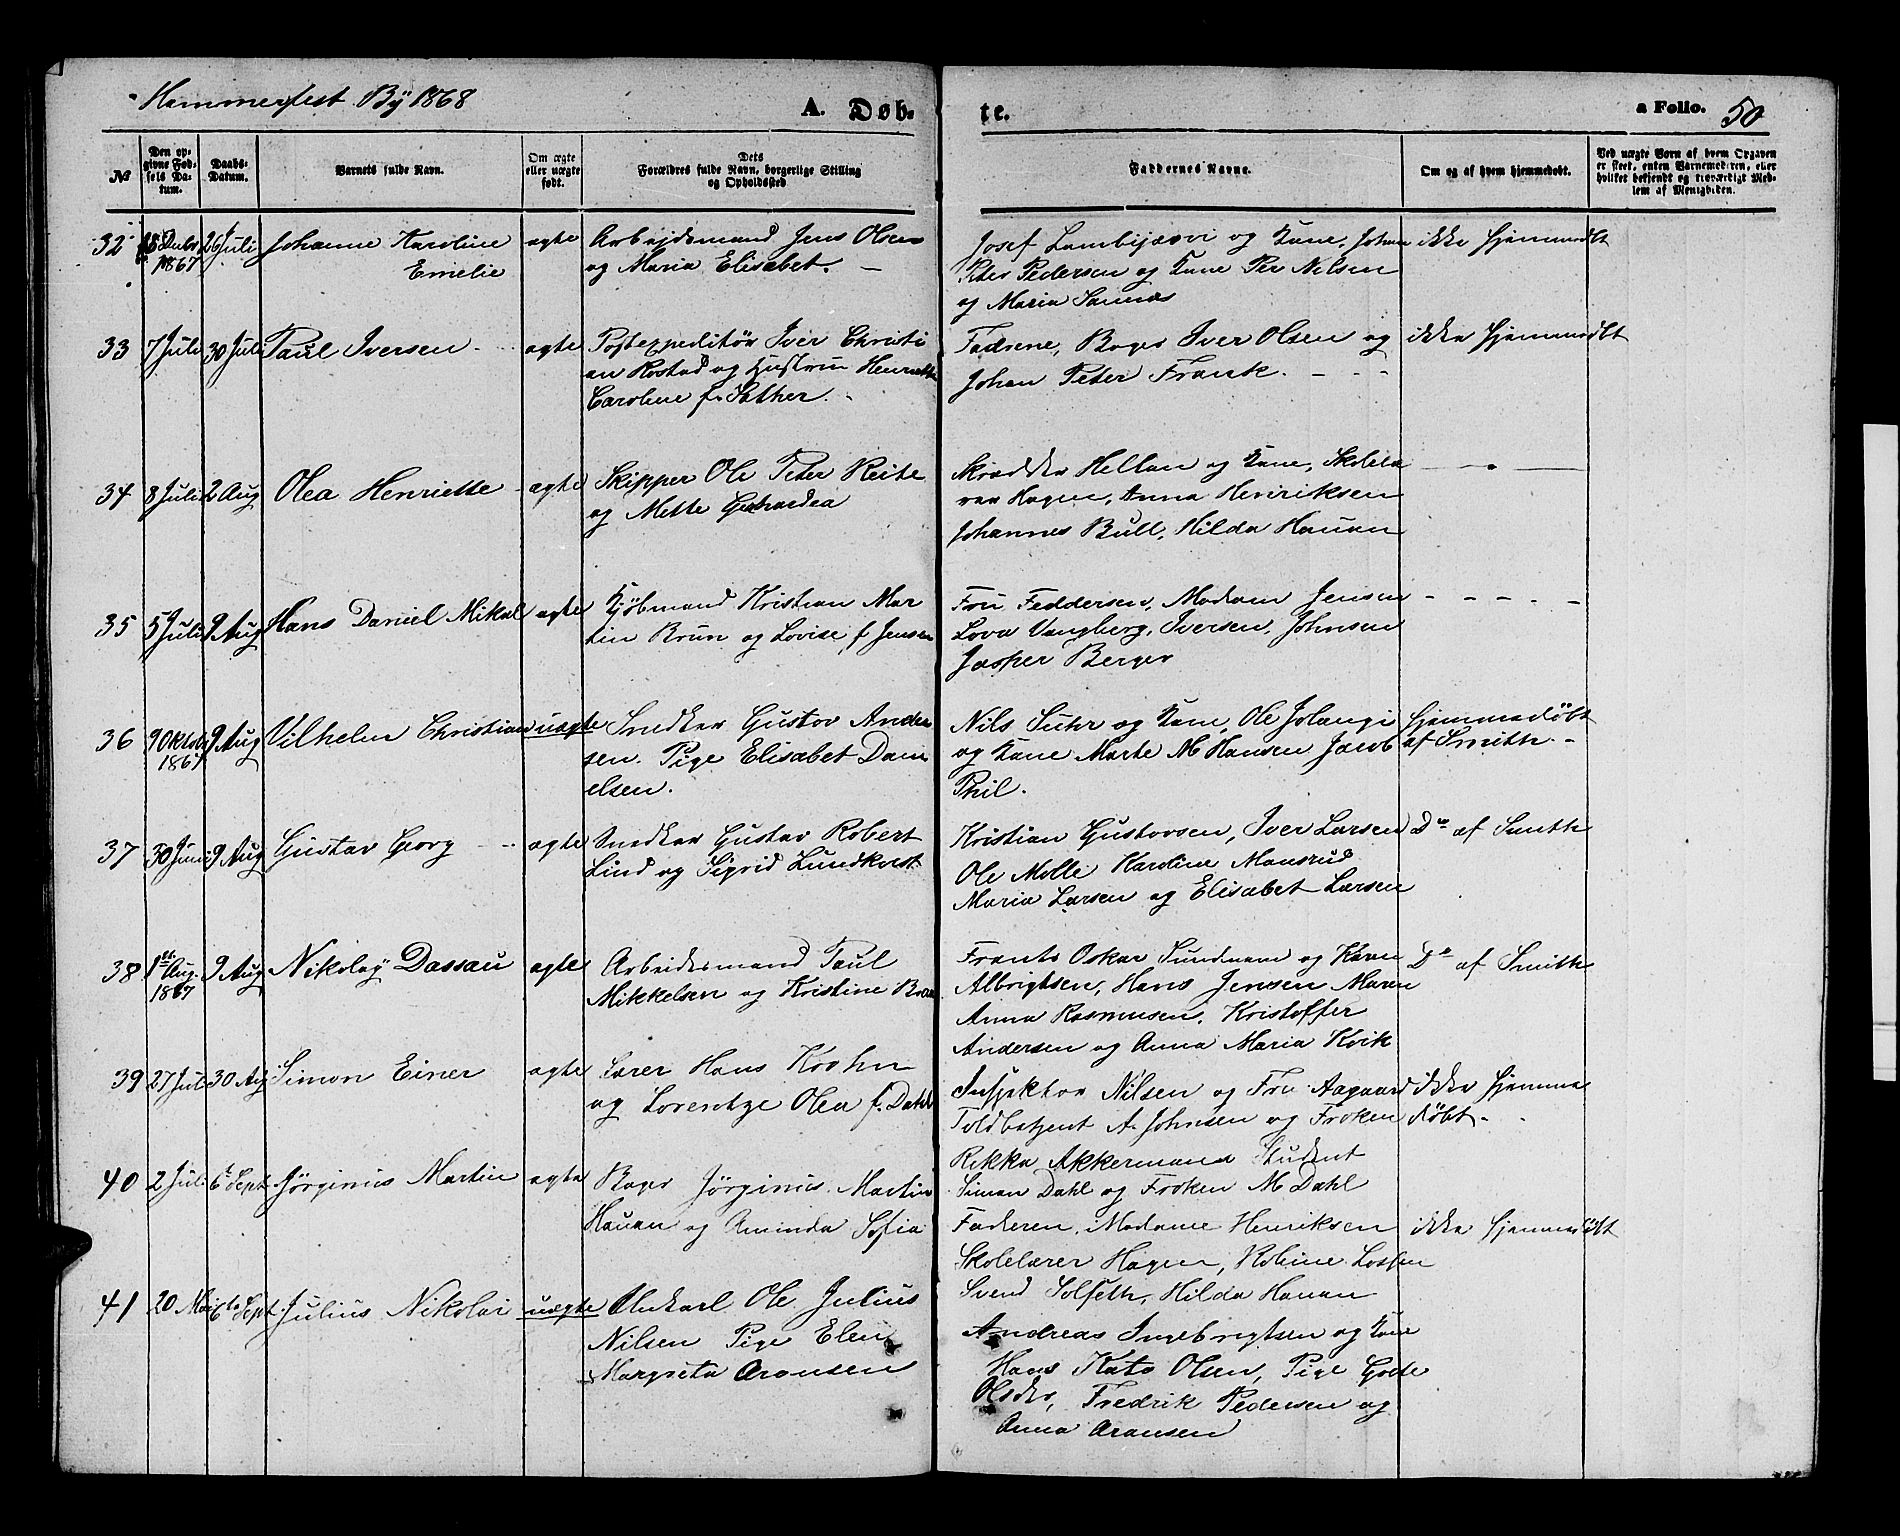 Hammerfest By 1868
A. Døb-
te.
a Folio. 50
No
Den op-
givne Fød-
sels Da-
tum.
Daabs-
Datum.
Barnets fulde Navn.
Om ægte
eller uægte
født.
Dets
Forældres fulde Navn, borgerlige Stilling
og Opholdssted
Faddernes Navne.
Om og af hvem hjemmedøbt.
Ved uægte Børn af hvem Opgaven
er skeet, enten Barnemoderen, eller
hvilket bekjendt og troværdigt Med-
lem af Menigheden.
32 26 Juli Johanne Karoline ægte Arbejdsmand Jens Olsen
1867 Emelie og Maria Elisabet. —
Josef Lambijærvi og Kone, Johan ikke hjemmedøbt
Peter Pedersen og Kone Per Nilsen
og Maria Sannæs
33 7 Juli 30 Juli Paul Iversen ægte Postexpeditør Iver Christi
an Rostad og Hustru Henriette
Caroline f. Sæther.
Fadrene, Bager Iver Olsen og ikke hjemmedøbt
Johan Peter Frank. - - -
34 8 Juli 2 Aug Olea Henriette ægte Skipper Ole Peter Reite
og Mette Gerhardea
Skrædder Hellan og Kone, Skolelæ
rer Hagen, Anna Henriksen
Johannes Bull, Hilda Hauan
35 5 Juli 9 Aug Hans Daniel Mikal ægte Kjøbmand Kristian Mar
tin Brun og Lovise f Jensen
Fru Feddersen, Madam Jensen - - - - -
Lova Vangberg, Iversen, Johnsen
Jasper Berger
36 9 Oktbr 9 Aug Vilhelm Christian uægte Snedker Gustav Ander
1867 sen. Pige Elisabet Dani
elsen.
Nils Suhr og Kone, Ole Jolangi hjemmedøbt
og Kone Marte M Hansen Jacob af Smith -
Phil.
37 30 Juni 9 Aug Gustav Georg ægte Snedker Gustav Robert
Lind og Sigrid Lundkvist
Kristian Gustavsen, Iver Larsen Do af Smith
Ole Molle Karoline Mansrud
Maria Larsen og Elisabet Larsen
38 1 Aug. 9 Aug Nikolaj Dassau ægte Arbeidsmand Paul
1867 Mikkelsen og Kristine
Frants Oskar Sundmann og Karen Do af Smith
Albrigtsen, Hans Jensen Maren
Anna Rasmusen, Kristoffer
Andersen og Anna Maria Kvik
39 27 Juli 30 Aug Simon Einer ægte Lærer Hans Krohn
og Lorentze Olea f. Dahl
Inspektør Nilsen og Fru Aagaard ikke hjemme
Toldbetjent A. Johnsen og Frøken døbt.
Rikka Akkermann Student
Simon Dahl og Frøken M Dahl
40 2 Juli 6t Sept Jørginus Martin ægte Bager Jørginus Martin
Hauan og Aminda Sofia
Faderen, Madame Henriksen ikke hjemmedøbt
Skolelærer Hagen, Robine
Svend Solseth, Hilda Hauan
41 20 Mai 6te Sept. Julius Nikolai uægte Ole Julius
Nilsen Pige Elen
Margreta Aronsen
Andreas Ingebrigtsen og Kone
Hans Kato Olsen, Pige
Olsdtr, Fredrik Pedersen og
Anna Aronsen